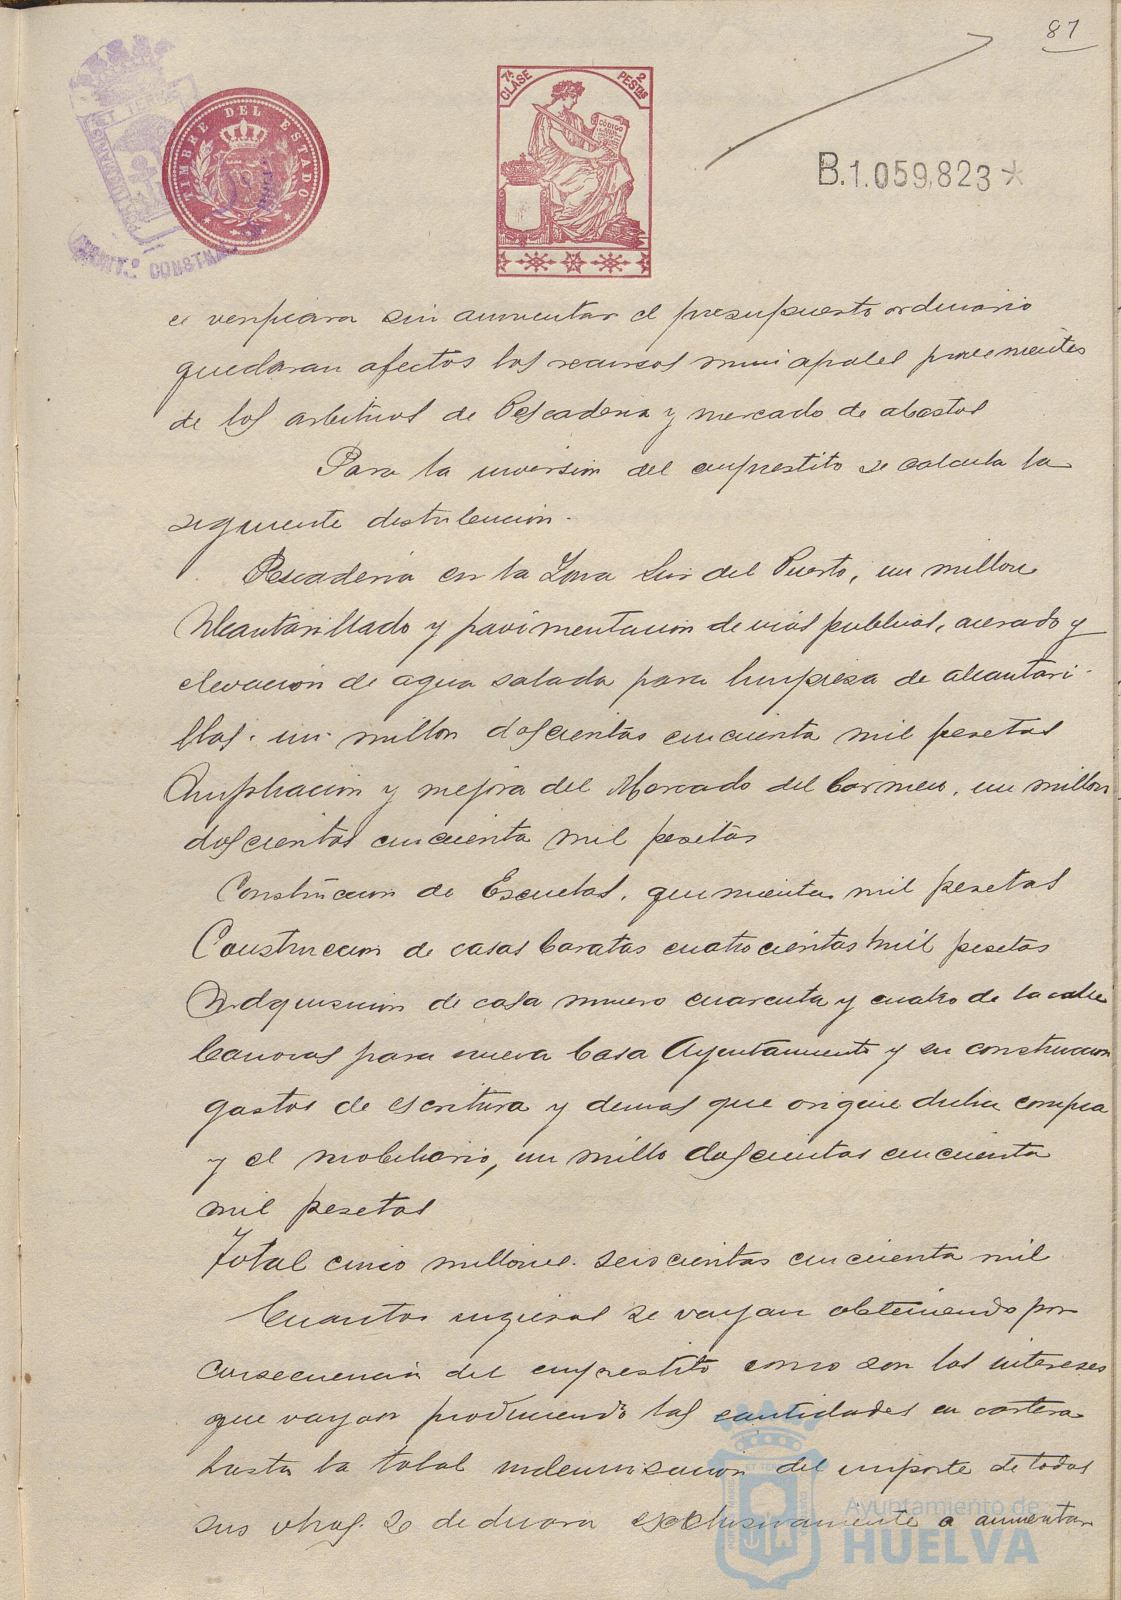 87
TIMBRE DEL ESTADO
7ª CLASE
2 PESTAS
CÓDIGO
B.1.059,823*
CONSTNAL
se verificara sin aumentar el presupuesto ordinario
quedaran afectos los recursos municipales provenientes
de los arbitrios de Pescaderia y mercado de abastos
Para la inversion del emprestito se calcula la
siguiente distribucion.
Pescaderia en la Zona Sur del Puerto, un millon
Alcantarillado y pavimentacion de vias publicas, acerado y
elevacion de agua salada para limpieza de alcantari-
llas. un millon doscientas cincuenta mil pesetas
Ampliacion y mejora del Mercado del Carmen, un millon
doscientas cincuenta mil pesetas
Construccion de Escuelas, quinientas mil pesetas
Construccion de casas baratas cuatrocientas mil pesetas
Adquisicion de casa numero cuarenta y cuatro de la calle
Canovas para nueva Casa Ayuntamiento y su construccion
gastos de escritura y demas que origine dicha compra
y el mobiliario, un millo doscientas cincuenta
mil pesetas
Total cinco millones seiscientas cincuenta mil
Cuantos ingresos se vayan obteniendo por
consecuencia del emprestito como son los intereses
que vayan produciendo las cantidades en cartera
hasta la total indemnizacion del importe de todas
sus obras. se dedicara exclusivamente a aumentar
Ayuntamiento de
HUELVA